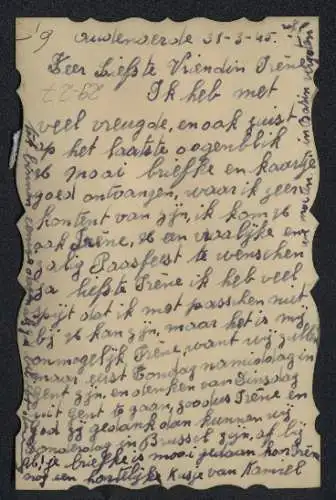 Audenaerde 31-3-45.
Zeer Liefste Vriendin Irène
29-2-7
Ik heb met
veel vreugde, en ook juist
op het laatste oogenblik
U mooi briefke en kaartje
goed ontvangen, waar ik zeer
kontent van zijn, ik kom U
ook Irène, U een vroolijke en
zalig Paaschfeest te wenschen
Ja liefste Irène ik heb veel
spijt dat ik met passchen niet
bij U kan zijn, maar het is mij
onmogelijk Irène, want wij zullen
maar eerst Zondag namiddag in
Gent zijn, en denken van Dinsdag
uit Gent te gaan, zoodus Irène en
God zij gedankt dan kunnen wij
Donderdag in Brussel zijn,
briefke is mooi gedaan hoor Irène
nog een hartelijke Kusje van Marcel